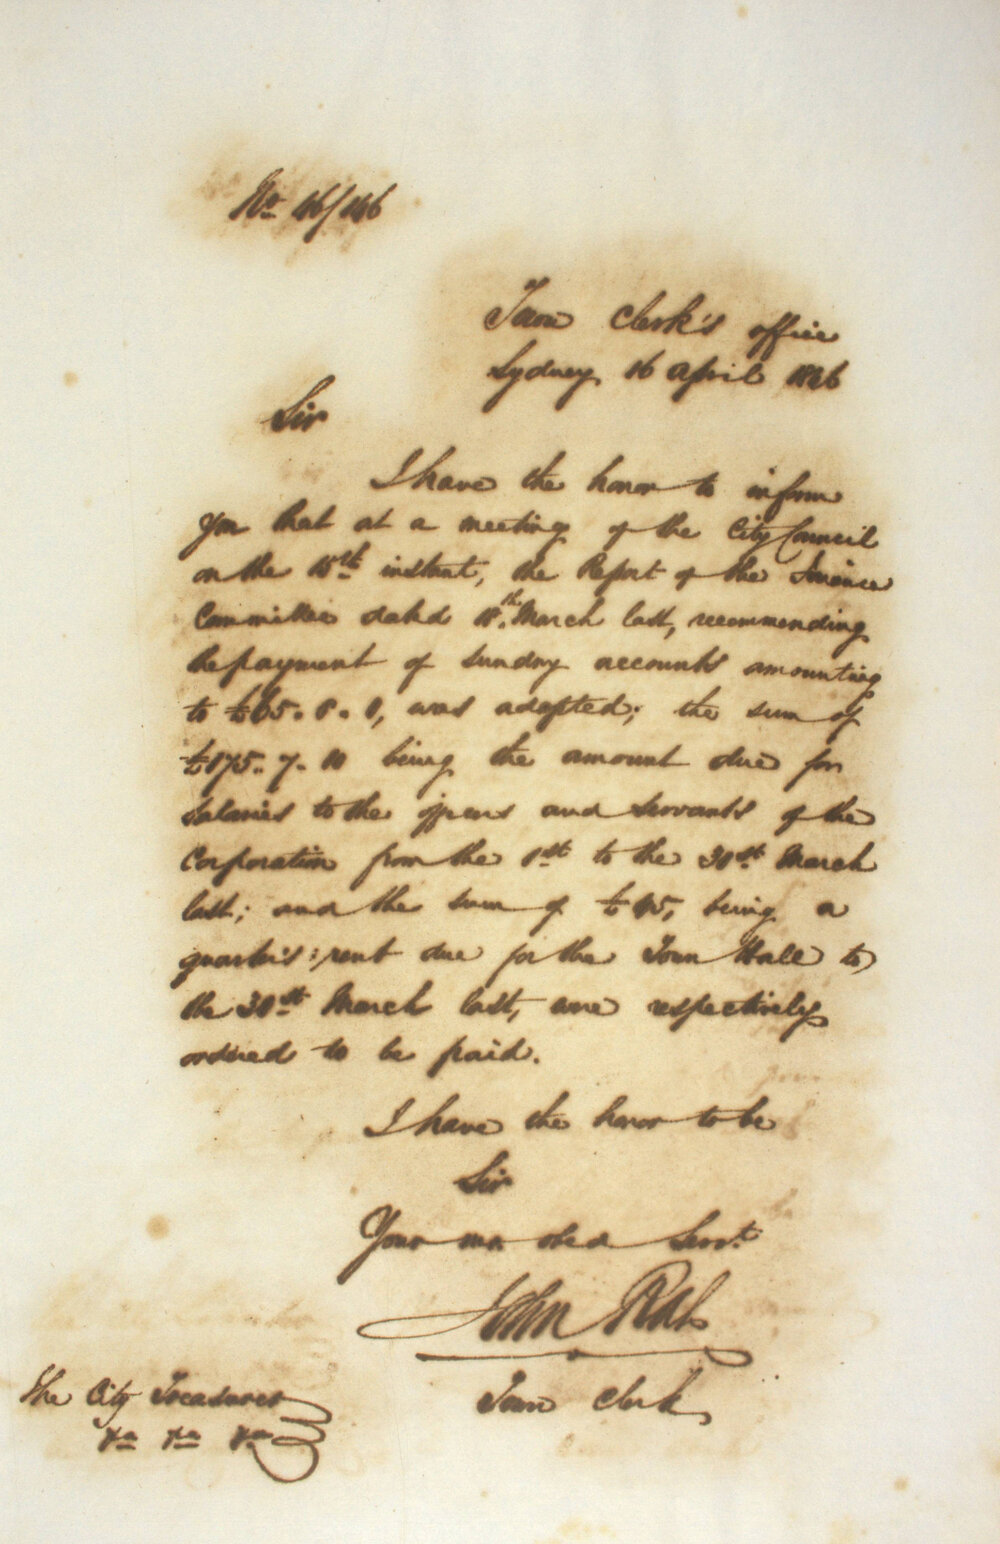 No. 46/146
Town Clerk's office
Sydney 16 April 1846
Sir
I have the honor to inform
you that at a meeting of the City Council
on the 15th instant, the Report of the Finance
Committee dated 18th. March last, recommending
the payment of sundry accounts amounting
to £65. 8. 1, was adopted; the sum of
£175. 7. 10 being the amount due for
salaries to the officers and servants of the
Corporation from the 1st to the 31st March
last; and the sum of being a
quarter's rent due for the Town Hall to
the 31st March last, were respectively
ordered to be paid.
I have the honor to be
Sir
Your obed Servt.
John
Town Clerk
The City Treasurer